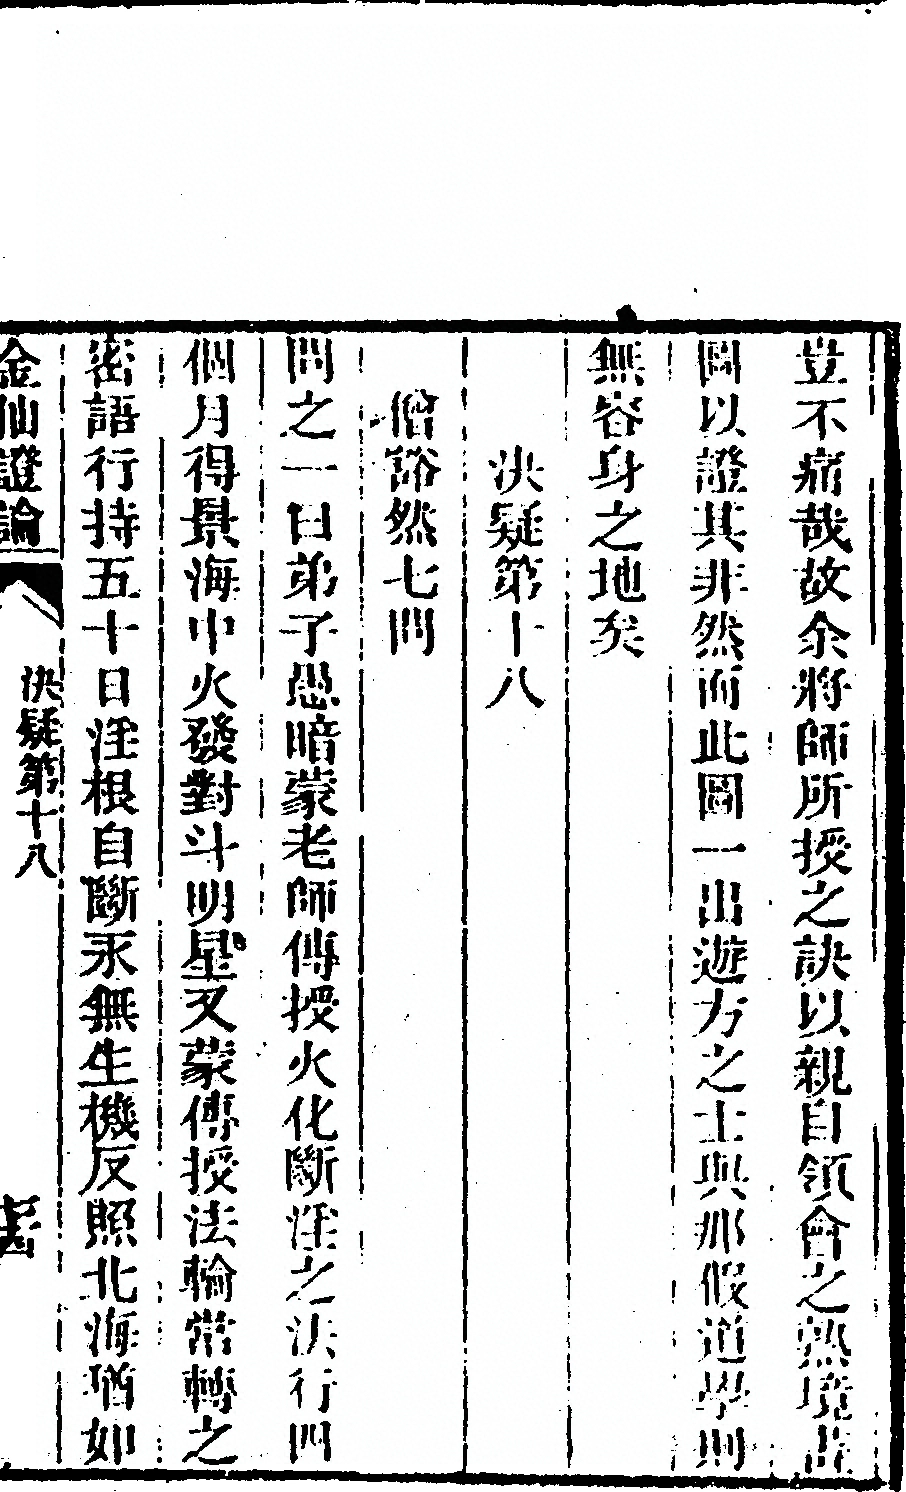 豈不痛哉故余將師所授之訣以親自領會之熟境畫
圖以證其非然而此圖一出遊方之士與那假道學則
無容身之地矣
決疑第十八
僧豁然七問
問之一曰弟子愚暗蒙老師傳授火化斷淫之法行四
個月得景海中火發對斗明星又蒙傳授法輪常轉之
密語行持五十日淫根自斷永無生機反照北海猶如
金仙證論
決疑第十八